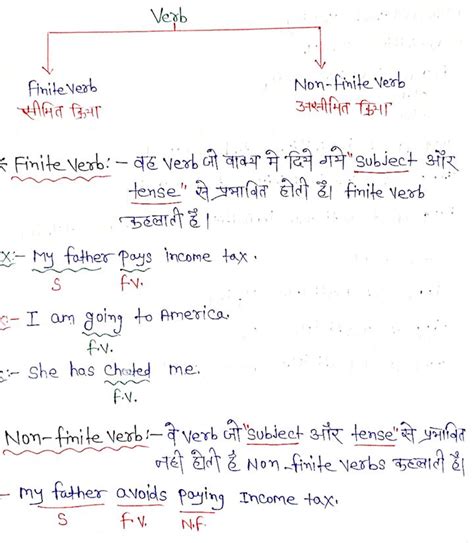 Verb
Finite Verb Non-finite Verb
सीमित क्रिया असीमित क्रिया
Finite Verb:- वह Verb जो वाक्य मे दिये गये "Subject और
tense" से प्रभावित होती है। finite verb
कहलाती है।
x:- My father pays income tax.
S f.v.
:- I am going to America.
f.v.
:- She has Cheated me.
f.v.
Non-finite Verb:- वे Verb जो "Subject और tense" से प्रभावित
नही होती है Non-finite Verbs कहलाती है।
- my father avoids paying Income tax.
S f.v. N.f.